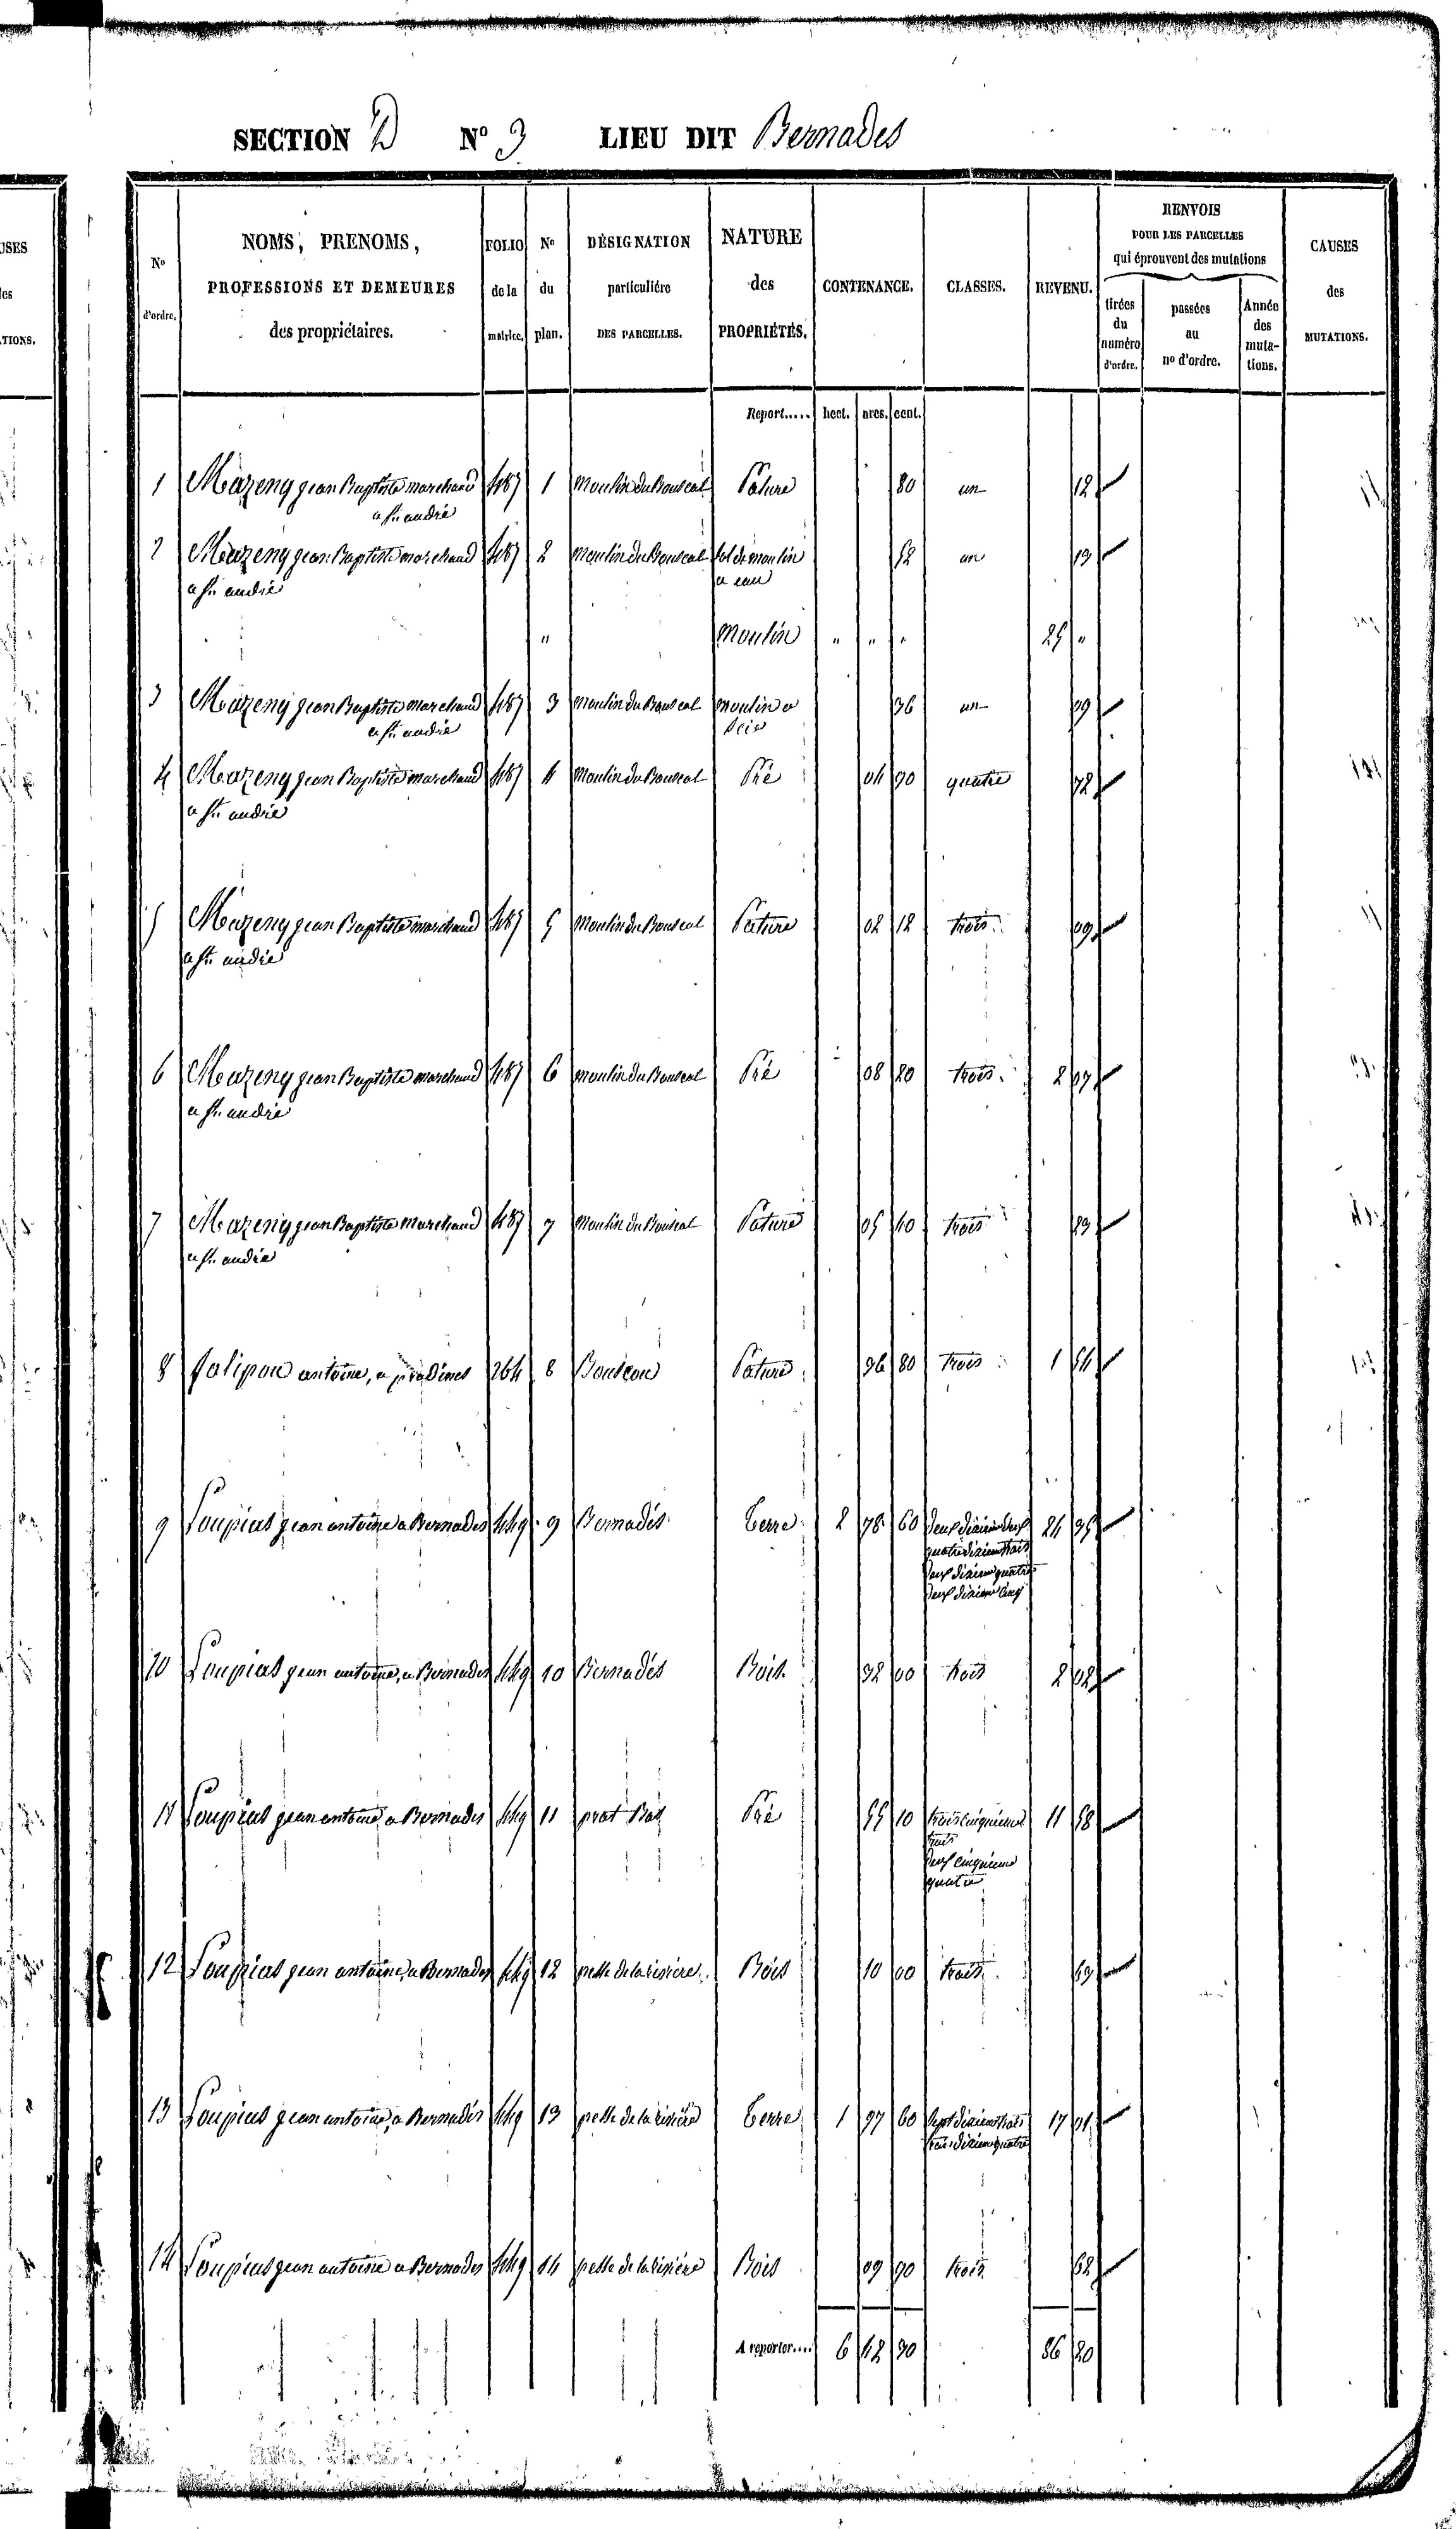 SECTION D N° 3 LIEU DIT Bernades
N° d'ordre. NOMS, PRENOMS, PROFESSIONS ET DEMEURES des propriétaires. FOLIO de la matrice. N° du plan. DÉSIGNATION particulière DES PARCELLES. NATURE des PROPRIÉTÉS. CONTENANCE. CLASSES. REVENU. RENVOIS POUR LES PARCELLES qui éprouvent des mutations tirées du numéro d'ordre. passées au no d'ordre. Année des mutations. CAUSES des MUTATIONS.
Report..... hect. ares. cent.
1 Mazeny jean Baptiste marchand 487 1 Moulin du Bouscal Pature 80 un 12
a st. andré
2 Mazeny jean Baptiste marchand 487 2 Moulin du Bouscal sol de moulin 52 un 19
a st. andré a eau
" Moulin " " " 25 "
3 Mazeny jean Baptiste marchand 487 3 Moulin du Bouscal moulin a 36 un
a st. andré scie
4 Mazeny jean Baptiste marchand 487 4 Moulin du Bouscal Pré 04 90 quatre 72
a st. andré
5 Mazeny jean Baptiste marchand 487 5 Moulin du Bouscal Pature 02 12 trois 09
a st. andré
6 Mazeny jean Baptiste marchand 487 6 moulin du Bouscal Pré 08 80 trois 2 07
a st. andré
7 Mazeny jean Baptiste marchand 487 7 Moulin du Bouscal Pature 05 60 trois
a st. andré
8 antoine, a pradines 264 8 Pature 36 80 trois 1 54
9 Loupias jean antoine a Bernades 449 9 Bernadés Terre 2 78 60 deux dixieme deux 24 95
quatre dixieme trois
deux dixieme quatre
deux dixieme cinq
10 Loupias jean antoine, a Bernades 449 10 Bernadés Bois 32 00 trois 2 02
11 Loupias jean antoine, a Bernades 449 11 prat Bas Pré 55 10 trois cinquieme 11 58
trois
deux cinquieme
quatre
12 Loupias jean antoine, a Bernades 449 12 de la Bois 10 00 trois 63
13 Loupias jean antoine, a Bernadés 449 13 de la Terre 1 97 60 sept dixieme trois 17
trois dixieme quatre
14 Loupias jean antoine a Bernades 449 14 de la Bois 09 90 trois 62
A reporter.... 6 42 90 86 20